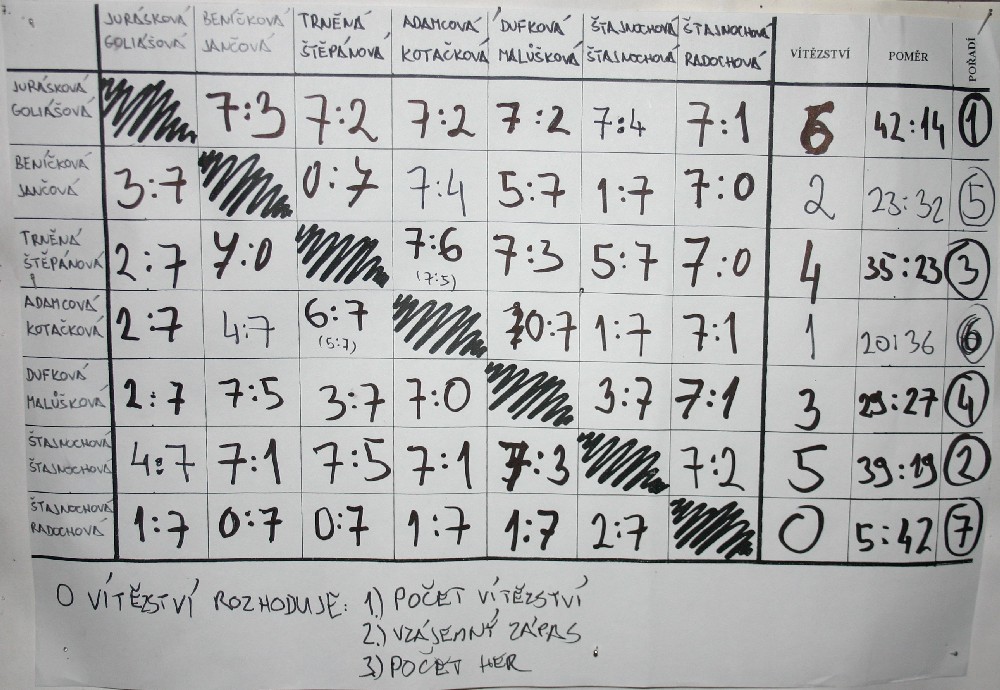 JURÁSKOVÁ GOLIÁŠOVÁ BENÍČKOVÁ JANČOVÁ TRNĚNÁ ŠTĚPÁNOVÁ ADAMCOVÁ KOTAČKOVÁ DUFKOVÁ MALŮŠKOVÁ ŠTAJNOCHOVÁ ŠTAJNOCHOVÁ ŠTAJNOCHOVÁ RADOCHOVÁ VÍTĚZSTVÍ POMĚR POŘADÍ
JURÁSKOVÁ GOLIÁŠOVÁ 7:3 7:2 7:2 7:2 7:4 7:1 6 42:14 1
BENÍČKOVÁ JANČOVÁ 3:7 0:7 7:4 5:7 1:7 7:0 2 23:32 5
TRNĚNÁ ŠTĚPÁNOVÁ 2:7 7:0 7:6 (7:5) 7:3 5:7 7:0 4 35:23 3
ADAMCOVÁ KOTAČKOVÁ 2:7 4:7 6:7 (5:7) 0:7 1:7 7:1 1 20:36 6
DUFKOVÁ MALŮŠKOVÁ 2:7 7:5 3:7 7:0 3:7 7:1 3 29:27 4
ŠTAJNOCHOVÁ ŠTAJNOCHOVÁ 4:7 7:1 7:5 7:1 7:3 7:2 5 39:19 2
ŠTAJNOCHOVÁ RADOCHOVÁ 1:7 0:7 0:7 1:7 1:7 2:7 0 5:42 7
O VÍTĚZSTVÍ ROZHODUJE: 1.) POČET VÍTĚZSTVÍ
2.) VZÁJEMNÝ ZÁPAS
3.) POČET HER